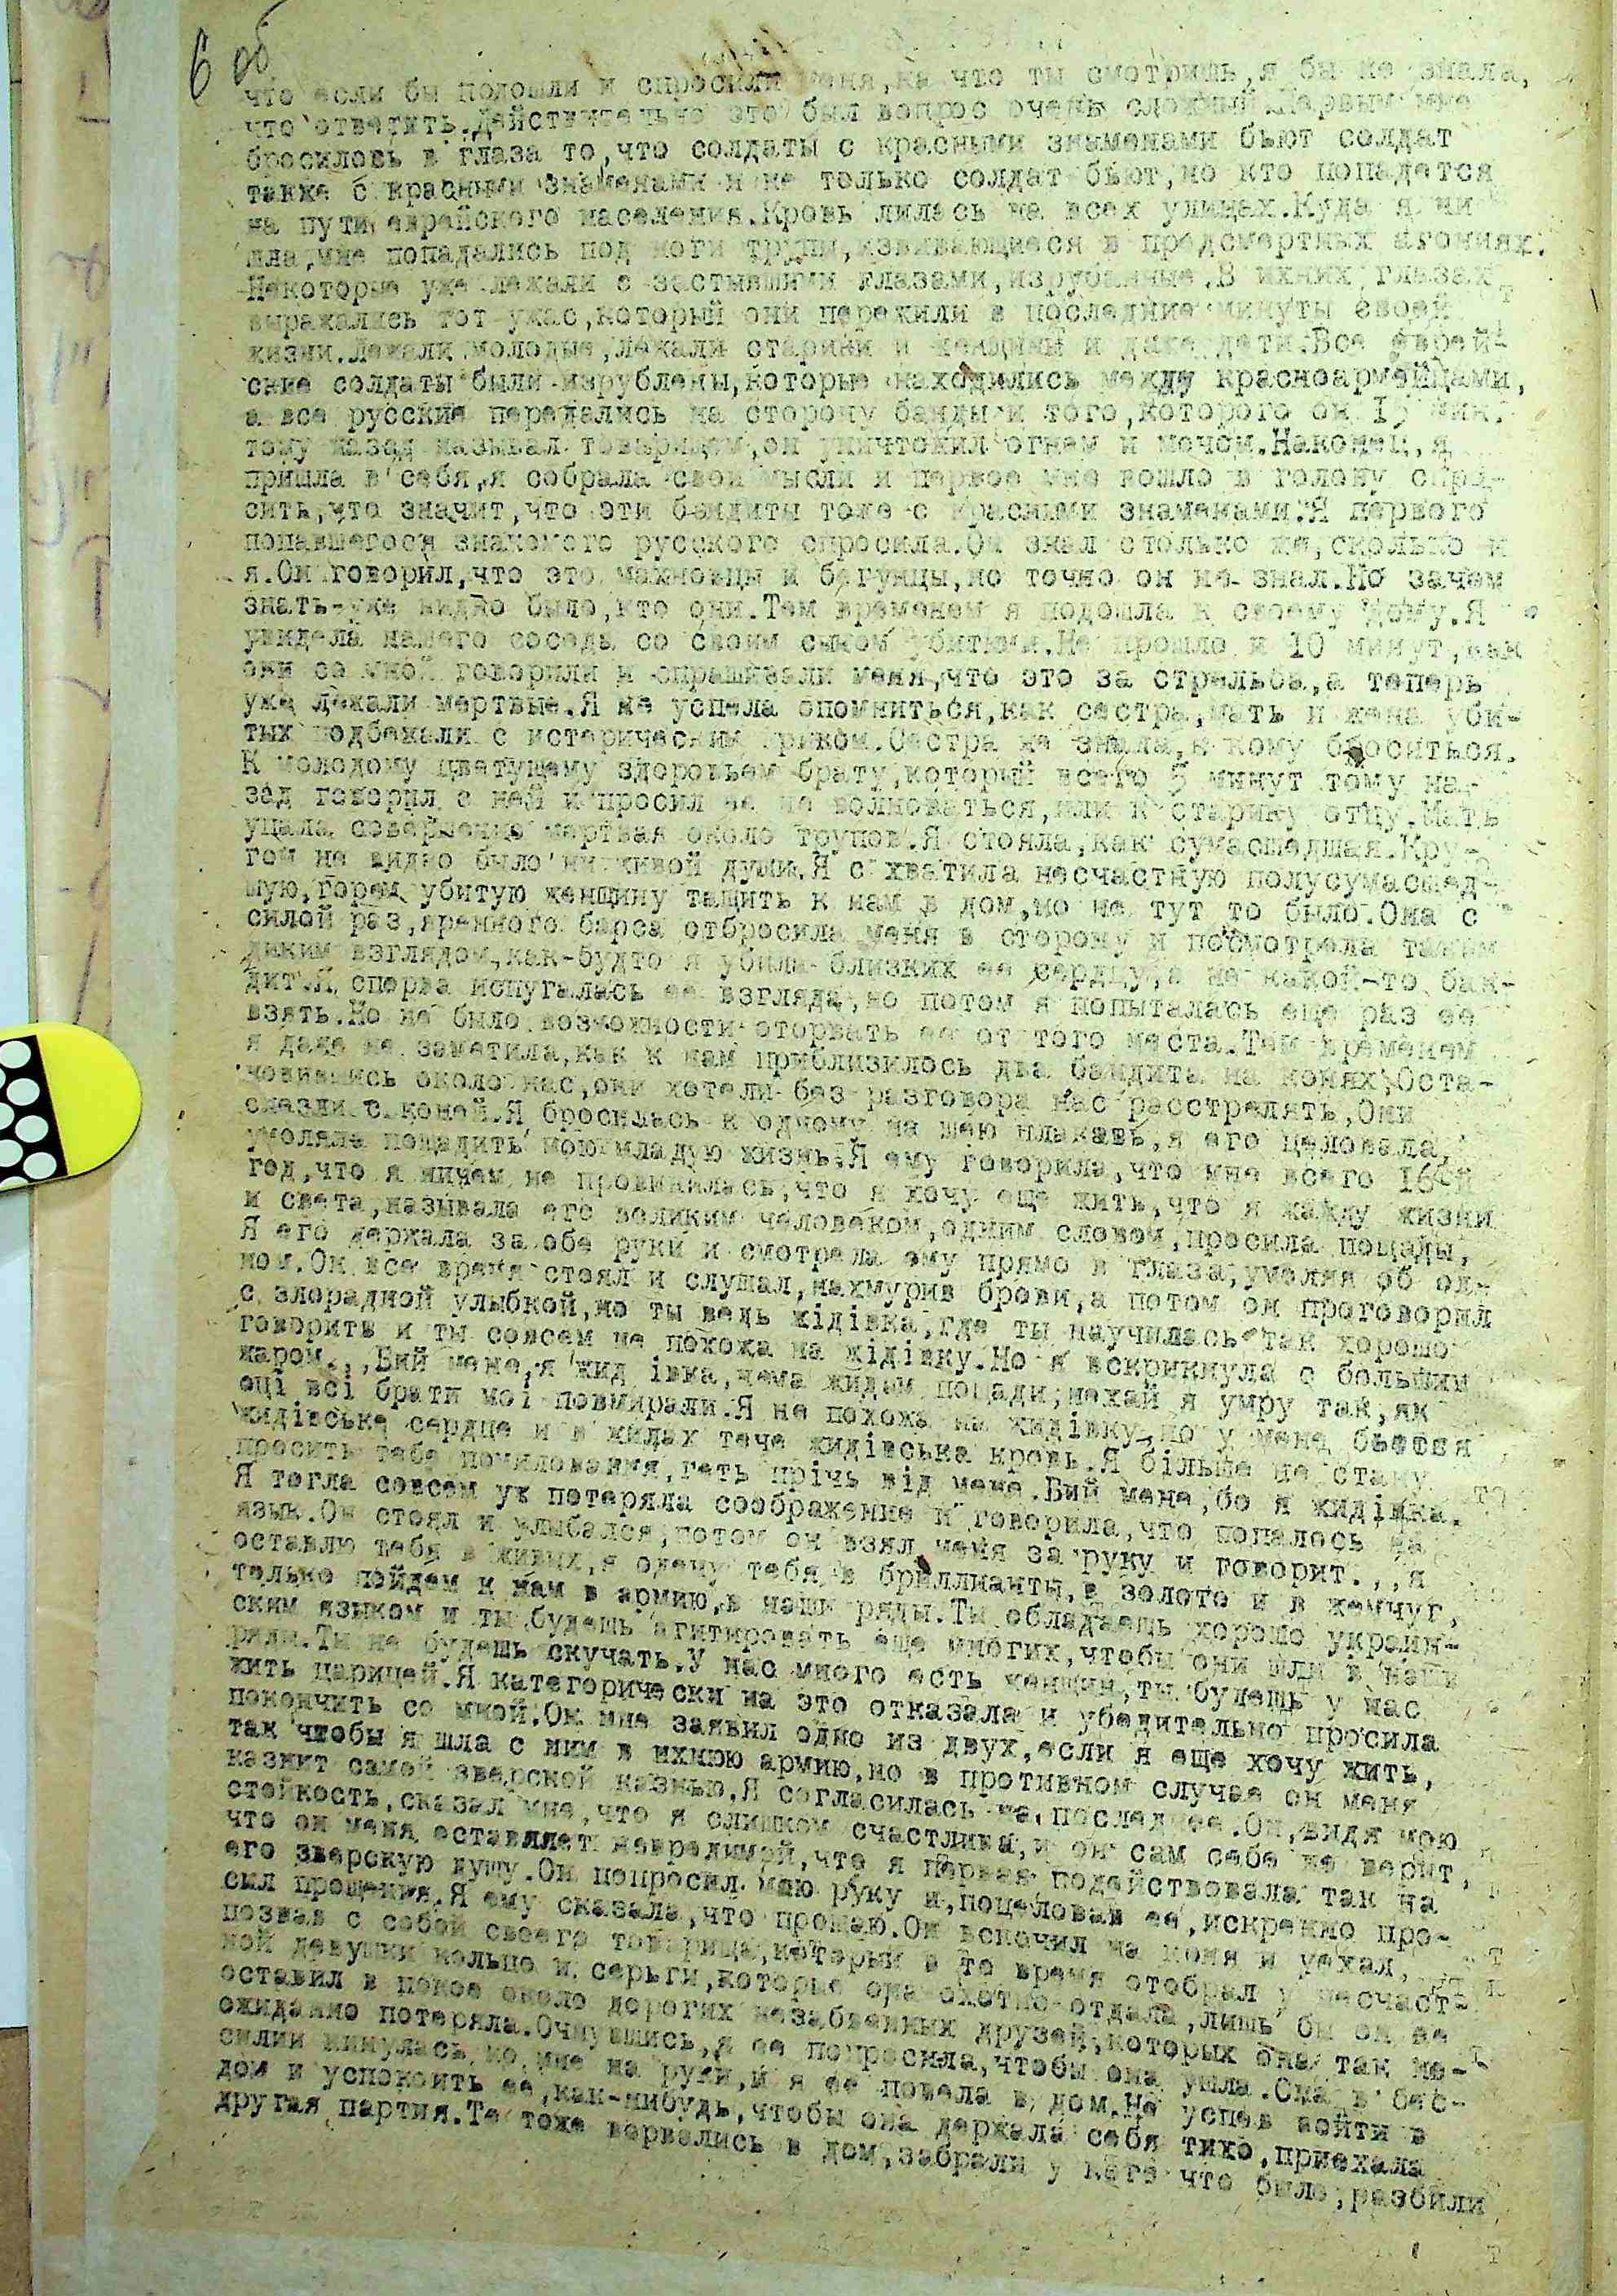 6 об
что если бы подошли и спросили меня,на что ты смотришь,я бы не знала,
что ответить.Действительно это был вопрос очень сложный.Первым мне
бросилось в глаза то,что солдаты с красными знаменами бьют солдат
также с красными знаменами и не только солдат бьют,но кто попадется
на пути еврейского населения.Кровь лилась на всех улицах.Куда я ни
шла,мне попадались под ноги трупы,извивающиеся в предсмертных агониях.
Некоторые уже лежали с застывшими глазами,изрубленные.В ихних глазах
выражались тот ужас,который они пережили в последние минуты своей
жизни.Лежали молодые,лежали старики и женщины и даже дети.Все еврей-
ские солдаты были изрублены,которые находились между красноармейцами,
а все русские передались на сторону банды и того,которого он 15 мин.
тому назад называл товарищем,он уничтожил огнем и мечом.Наконец,я
пришла в себя,я собрала свои мысли и первое мне вошло в голову спро-
сить,что значит,что эти бандиты тоже с красными знаменами.Я первого
попавшегося знакомого русского спросила.Он знал столько же,сколько и
я.Он говорил,что это махновцы и богунцы,но точно он не знал.Но зачем
знать-уже видно было,кто они.Тем временем я подошла к своему дому.Я
увидела нашего соседа со своим сыном убитыми.Не прошло и 10 минут,как
они со мной говорили и спрашивали меня,что это за стрельба,а теперь
уже лежали мертвые.Я не успела опомниться,как сестра,мать и жена уби-
тых подбежали с истерическим криком.Сестра не знала,к кому броситься.
К молодому цветущему здоровьем брату,который всего 5 минут тому на-
зад говорил с ней и просил ее не волноваться,или к старику отцу.Мать
упала совершенно мертвая около трупов.Я стояла,как сумасшедшая.Кру-
гом не видно было ни живой души.Я с хватила несчастную полусумасшед-
шую,горем убитую женщину тащить к нам в дом,но не тут то было.Она с
силой раз,яренного барса отбросила меня в сторону и посмотрела таким
диким взглядом,как-будто я убила близких ее сердцу,а не какой-то бан-
дит.Я сперва испугалась ее взгляда,но потом я попыталась еще раз ее
взять.Но не было возможности оторвать ее от того места.Тем временем
я даже не заметила,как к нам приблизилось два бандита на конях.Оста-
новившись около нас,они хотели без разговора нас расстрелять,Они
слезли с коней.Я бросилась к одному на шею плакать,я его целовала,
умоляла пощадить мою младую жизнь.Я ему говорила,что мне всего 16-й
год,что я ничем не провинилась,что я хочу еще жить,что я жажду жизни
и света,называла его великим человеком,одним словом,просила пощады,
Я его держала за обе руки и смотрела ему прямо в глаза,умоляя об од-
ном.Он все время стоял и слушал,нахмурив брови,а потом он проговорил
с злорадной улыбкой,но ты ведь жідівка,где ты научилась так хорошо
говорить и ты совсем не похожа на жідівку.Но я вскрикнула с большим
жаром.,,Бий мене,я жид івка,нема жидам пощади,нехай я умру так,як
оці всі брати мої повмирали.Я не похожа на жидівку,но у мене бьется
жидівське сердце и в жидах тече жидівська кровь.Я більше не стану
просить тебе помилования,геть прічь від мене.Бий мене,бо я жидівка.
Я тогла совсем уж потеряла соображение и говорила,что попалось на
язык.Он стоял и улыбался,потом он взял меня за руку и говорит.,,я
оставлю тебя в живых,я одену тебя в бриллианты,в золото и в жемчуг,
только пойдем к нам в армию,в наши ряды.Ты обладаешь хорошо украин-
ским языком и ты будешь агитировать еще многих,чтобы они шли в наши
ряды.Ты не будешь скучать.У нас много есть женщин,ты будешь у нас
жить царицей.Я категорически на это отказала и убедительно просила
покончить со мной.Он мне заявил одно из двух,если я еще хочу жить,
так чтобы я шла с ним в ихнюю армию,но в противном случае он меня
казнит самой зверской казнью.Я согласилась на последнее.Он,видя мою
стойкость,сказал мне,что я слишком счастлива,и он сам себе не верит,
что он меня оставляет невредимой,что я первая подействовала так на
его зверскую душу.Он попросил мою руку и,поцеловав ее,искренно про-
сил прощения.Я ему сказала,что прощаю.Он вскочил на коня и уехал,
позвав с собой своего товарища,который в то время отобрал у несчаст-
ной девушки кольцо и серьги,которые она охотно отдала,лишь бы он ее
оставил в покое около дорогих незабвенных друзей,которых она так не-
ожиданно потеряла.Очнувшись,я ее попросила,чтобы она ушла.Она в бес-
силии кинулась ко мне на руки,и я ее повела в дом.Не успев войти в
дом и успокоить ее,как-нибудь,чтобы она держала себя тихо,приехала
другая партия.Те тоже ворвались в дом,забрали у кого что было,разбили